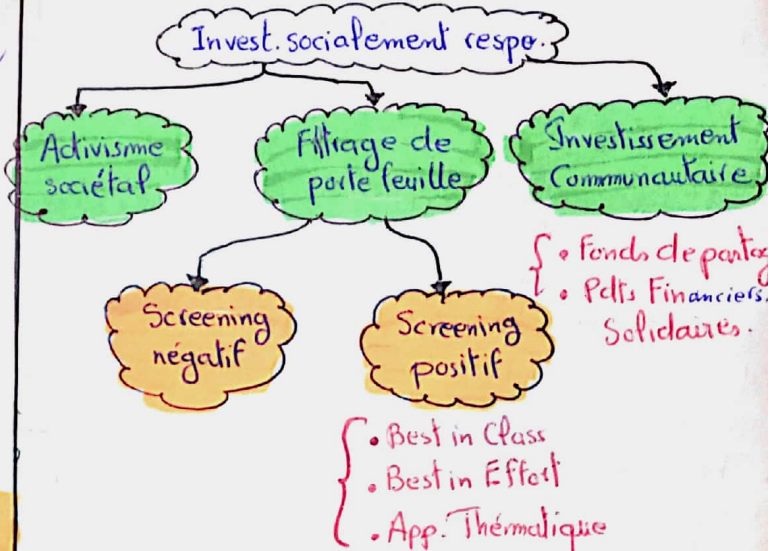 Invest. socialement respo.
Activisme
sociétal
Filtrage de
porte feuille
Investissement
Communautaire
• Fonds de partag
• Pdts Financiers.
Solidaires.
Screening
négatif
Screening
positif
• Best in Class
• Best in Effort
• App. Thématique